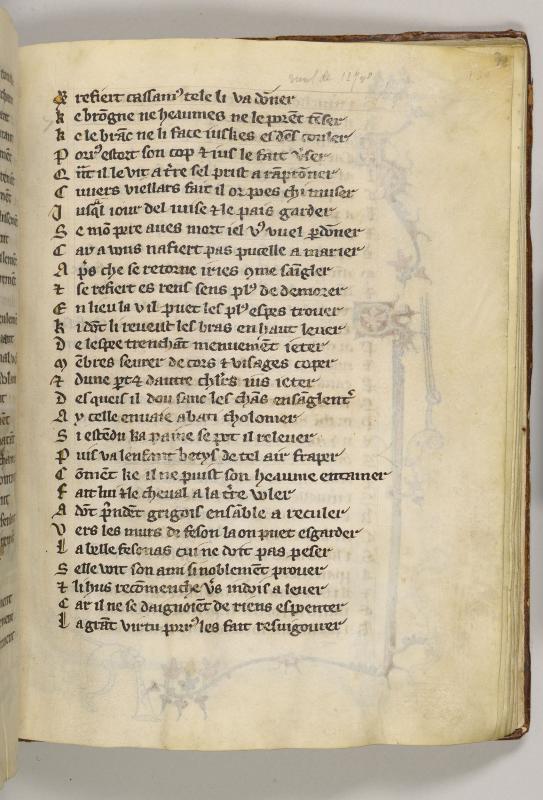 R refiert cassam9 tele li va dōner
k e brōgne ne heaumes ne le porēt tēser
k e le brāc ne li face iuskes es dēs couler
P orr9 estort son cop ⁊ ius le fait v̄ser
Q nt̄ il le vit a tr̄e sel prist a rāprōner
C uuers viellars fait il or poes chi muser
J usq̄l iour del iuise ⁊ le pais garder
S e mō pere aues mort iel v9 vuel ꝑdoner
C ar a vous nafiert pas pucelle a marier
A pr̄s che se retorne iries 9me sāgler
⁊ se refiert es rens sens pl9 de demorer
E n lieu la v il puet les pl9 espes trouer
k i dōt li reueist les bras en haut leuer
D e lespee trenchāt menuemēt ieter
M ēbres seurer de cors ⁊ visages coper
⁊ dune ꝑt ⁊ dautre chlr̄s ius ieter
D esqueis il dou sanc les chās ensāglent'
A y celle enuaie abati tholomer
S i estēdu ka paine se pot il releuer
P uis va lenfant betys de tel air fraper
C ōmēt ke il ne puist son heaume entamer
F ait lui ⁊ le cheual a la tr̄e voler
A dōt pr̄ndēt grigois ensāble a reculer
V ers les murs de feson la on puet esgarder
L a belle fesonas cui ne doit pas peser
S elle voit son ami si noblemēt prouer
⁊ li hus recōmenche v̄s indois a leuer
C ar il ne se daignoient de riens espoenter
L a grāt virtu porr9 les fait resuigourer